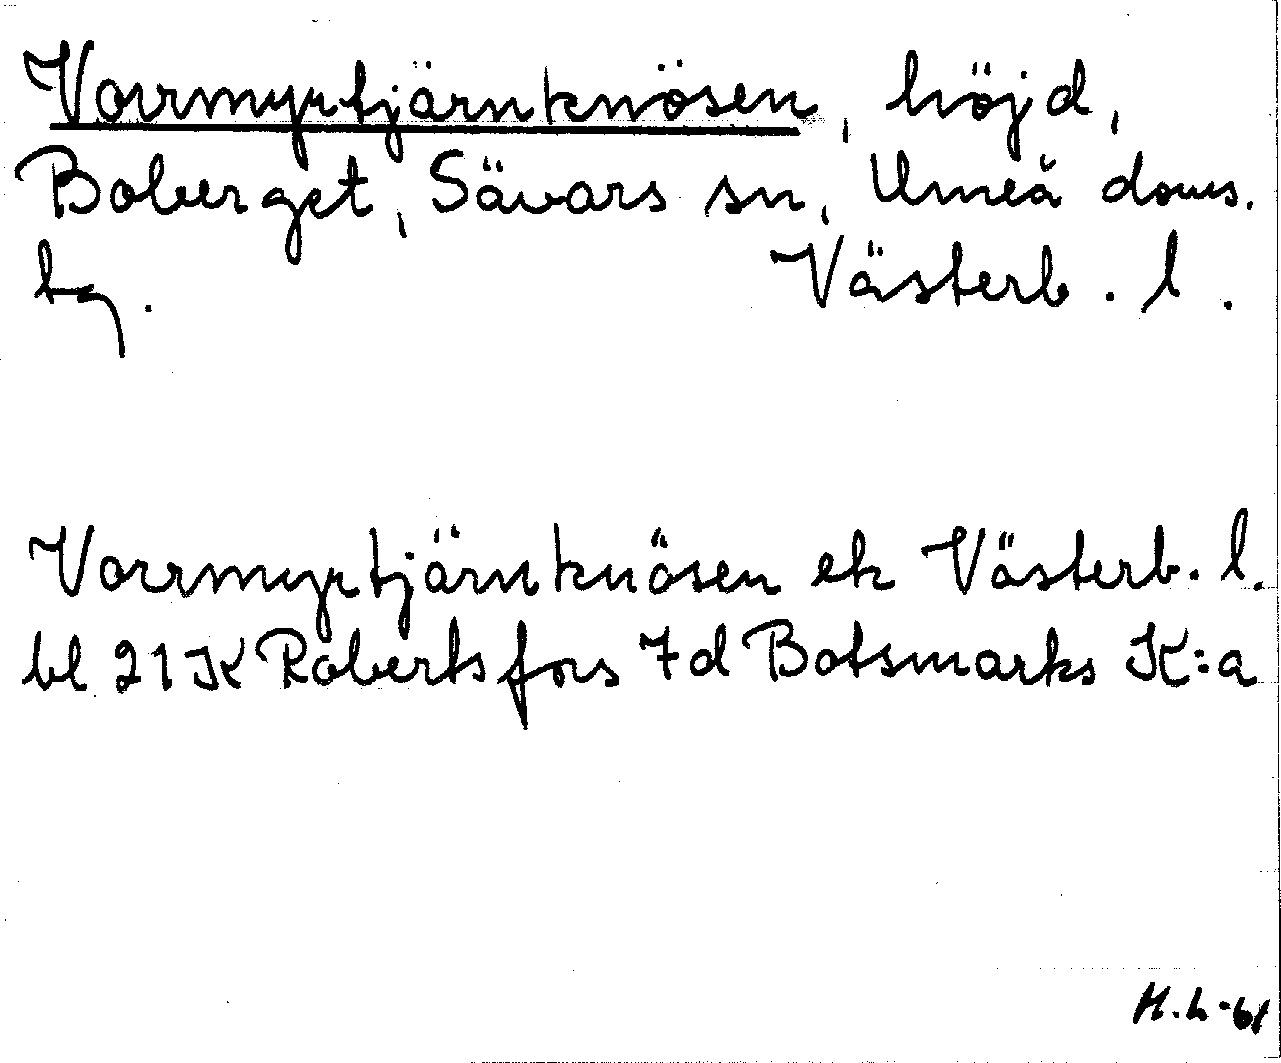 Vorrmyrtjärnknösen, höjd,
Boberget, Sävars sn, Umeå doms.
tg. Västerb. l.
Vorrmyrtjärnknösen ek Västerb. l.
bl 21 K Robertsfors 7d Botsmarks K:a
H.L-61